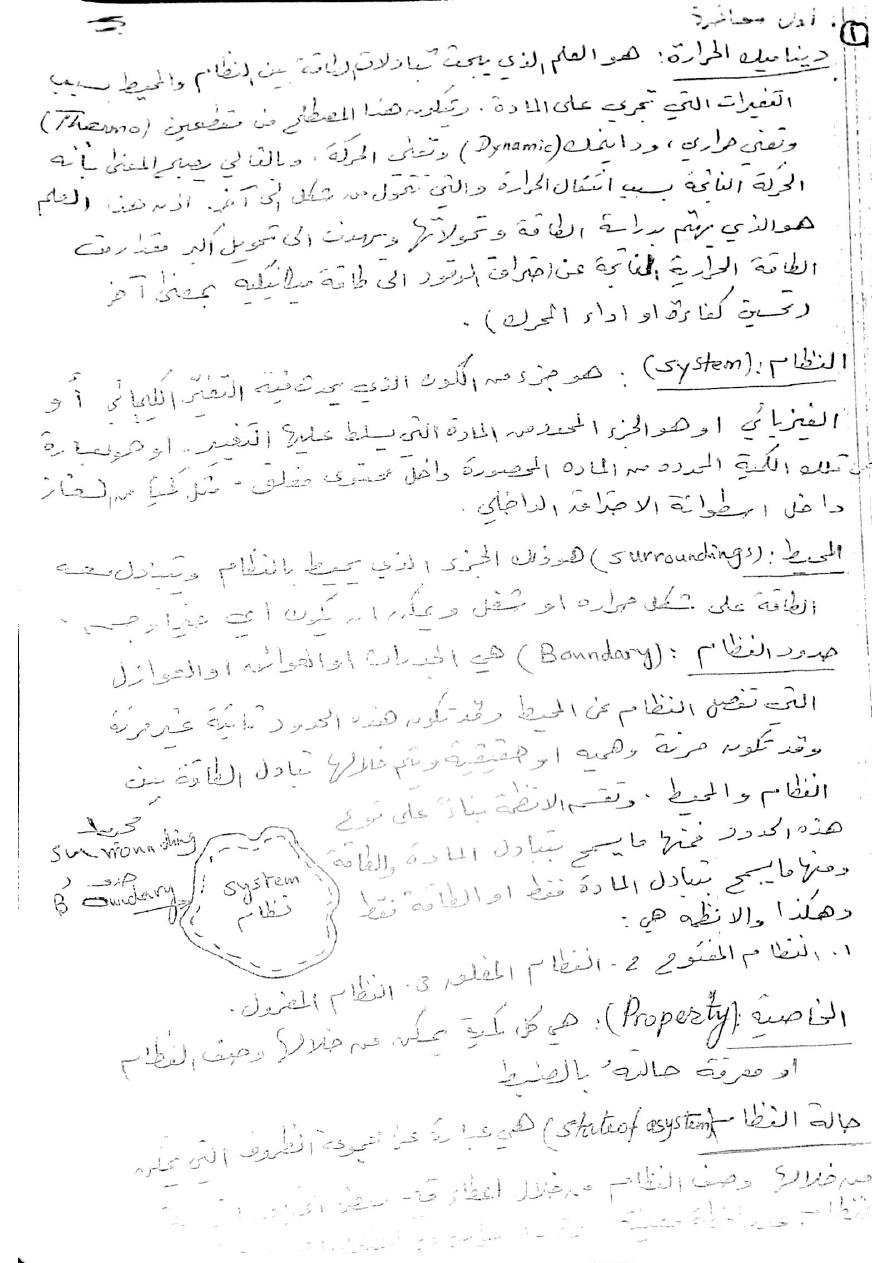 ١. أول محاضرة
ديناميك الحرارة: هو العلم الذي يبحث تبادلات الطاقة بين النظام والمحيط بسبب
التغيرات التي تجري على المادة. ويتكون هذا المصطلح من مقطعين (Thermo)
وتعني حراري، وداينمك (Dynamic) وتعني الحركة. وبالتالي يصبح المعنى بأنه
الحركة الناتجة بسبب انتقال الحرارة والتي تتحول من شكل الى آخر. اذن هذا العلم
هو الذي يهتم بدراسة الطاقة وتحولاتها ويهدف الى تحويل أكبر مقدار من
الطاقة الحرارية الناتجة عن احتراق الوقود الى طاقة ميكانيكيه بمعنى آخر
(تحسين كفاءة او اداء المحرك).
النظام: (System): هو جزء من الكون الذي يحدث فيه التغيّر الكيميائي أو
الفيزيائي او هو الجزء المحدد من المادة التي يسلط عليها التغيير. او هو عبارة
عن تلك الكمية المحدده من الماده المحصورة داخل محتوى مغلق - مثل كمية من الغاز
داخل اسطوانة الاحتراق الداخلي.
المحيط: (Surroundings) هو ذلك الجزء الذي يحيط بالنظام ويتبادل معه
الطاقة على شكل حراره او شغل ويمكن ان يكون أي حيز او جسم.
حدود النظام: (Boundary) هي الجدران او الحوائط او العوازل
التي تفصل النظام عن المحيط وقد تكون هذه الحدود ثابتة غير مرنة
وقد تكون مرنة وهميه او حقيقية ويتم خلالها تبادل الطاقة بين
النظام والمحيط. وتقسم الانظمة بناءً على نوع
هذه الحدود فمنها ما يسمح بتبادل المادة والطاقة
ومنها ما يسمح بتبادل المادة فقط او الطاقة فقط
وهكذا والانظمه هي:
محيط
Surrounding
حدود
Boundary
System
نظام
١. النظام المفتوح 2. النظام المغلق 3. النظام المعزول.
الخاصية: (Property): هي كل كمية يمكن من خلالها وصف النظام
او معرفة حالته بالضبط
حالة النظام (State of a system) هي عبارة عن مجموعة الظروف التي يمكن
من خلالها وصف النظام من خلال اعطاء